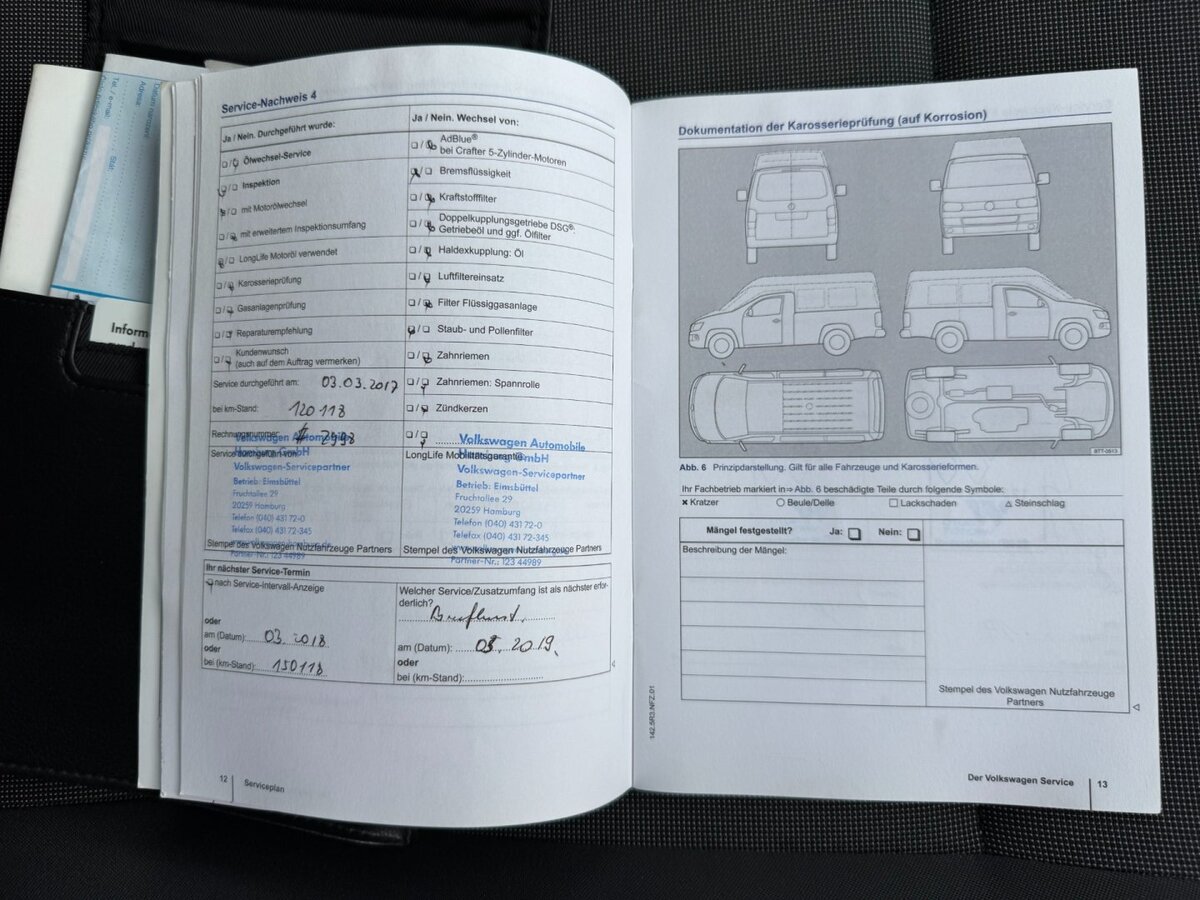 Datum narození
Adresa:
Tel. / e-mail:
Stát:
Inform
Service-Nachweis 4
Ja / Nein. Durchgeführt wurde:
Ja / Nein. Wechsel von:
Ölwechsel-Service
Inspektion
mit Motorölwechsel
mit erweitertem Inspektionsumfang
LongLife Motoröl verwendet
Karosserieprüfung
Gasanlagenprüfung
Reparaturempfehlung
Kundenwunsch
(auch auf dem Auftrag vermerken)
AdBlue®
bei Crafter 5-Zylinder-Motoren
Bremsflüssigkeit
Kraftstofffilter
Doppelkupplungsgetriebe DSG®:
Getriebeöl und ggf. Ölfilter
Haldexkupplung: Öl
Luftfiltereinsatz
Filter Flüssiggasanlage
Staub- und Pollenfilter
Zahnriemen
Zahnriemen: Spannrolle
Zündkerzen
Service durchgeführt am: 03.03.2017
bei km-Stand: 120118
Rechnungsnummer
Service durchgeführt von:
Volkswagen Automobile
Hamburg GmbH
Volkswagen-Servicepartner
Betrieb: Eimsbüttel
Fruchtallee 29
20259 Hamburg
Telefon (040) 431 72-0
Telefax (040) 431 72-345
Partner-Nr.: 123 44989
Stempel des Volkswagen Nutzfahrzeuge Partners
LongLife Mobilitätsgarantie
Volkswagen Automobile
Hamburg GmbH
Volkswagen-Servicepartner
Betrieb: Eimsbüttel
Fruchtallee 29
20259 Hamburg
Telefon (040) 431 72-0
Telefax (040) 431 72-345
Partner-Nr.: 123 44989
Stempel des Volkswagen Nutzfahrzeuge Partners
Ihr nächster Service-Termin
nach Service-Intervall-Anzeige
oder
am (Datum): 03. 2018
oder
bei (km-Stand): 150118
Welcher Service/Zusatzumfang ist als nächster erfor-
derlich?
am (Datum): 03. 2019
oder
bei (km-Stand):
12
Serviceplan
Dokumentation der Karosserieprüfung (auf Korrosion)
B7T-0613
Abb. 6 Prinzipdarstellung. Gilt für alle Fahrzeuge und Karosserieformen.
Ihr Fachbetrieb markiert in⇒ Abb. 6 beschädigte Teile durch folgende Symbole:
Kratzer Beule/Delle Lackschaden Steinschlag
Mängel festgestellt? Ja: Nein:
Beschreibung der Mängel:
Stempel des Volkswagen Nutzfahrzeuge
Partners
142.5R3.NFZ.01
Der Volkswagen Service 13